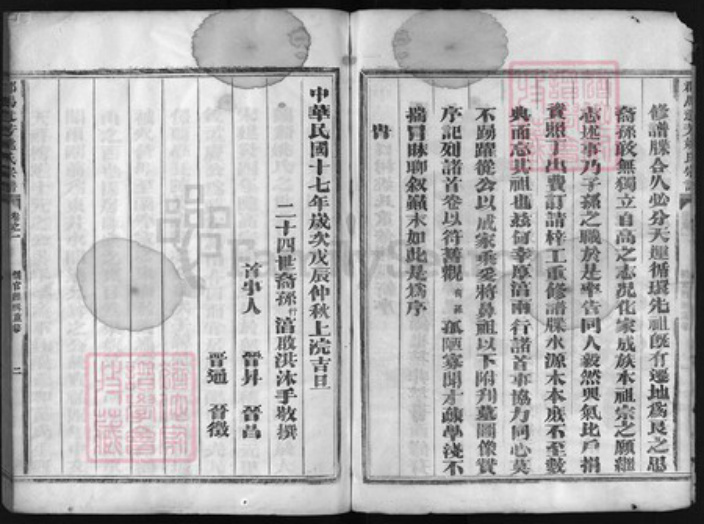 修譜牒合久必分天運循環先祖旣有遷地為良之思
裔孫敢無獨立自高之志況化家成族水祖宗之願繼
志述事乃子孫之職於是率告同人毅然興氣比戶捐
資照丁出費訂請梓工重修譜牒水源木本庶不至數
典而忘其祖也茲何幸厚淯兩行諸首事協力同心莫
不踴躍從公以成家乘爰將鼻祖以下附刋墓圖像贊
序記列諸首卷以符舊觀 孤陋寡聞才疎學淺不
揣冒昧聊叙顛末如此是為序
中華民國十七年歲次戊辰仲秋上浣吉旦
二十四世裔孫行淯敢洪沐手敬撰
首事人 晉昇 晉昌
晉通 晉徵
卷之一
二